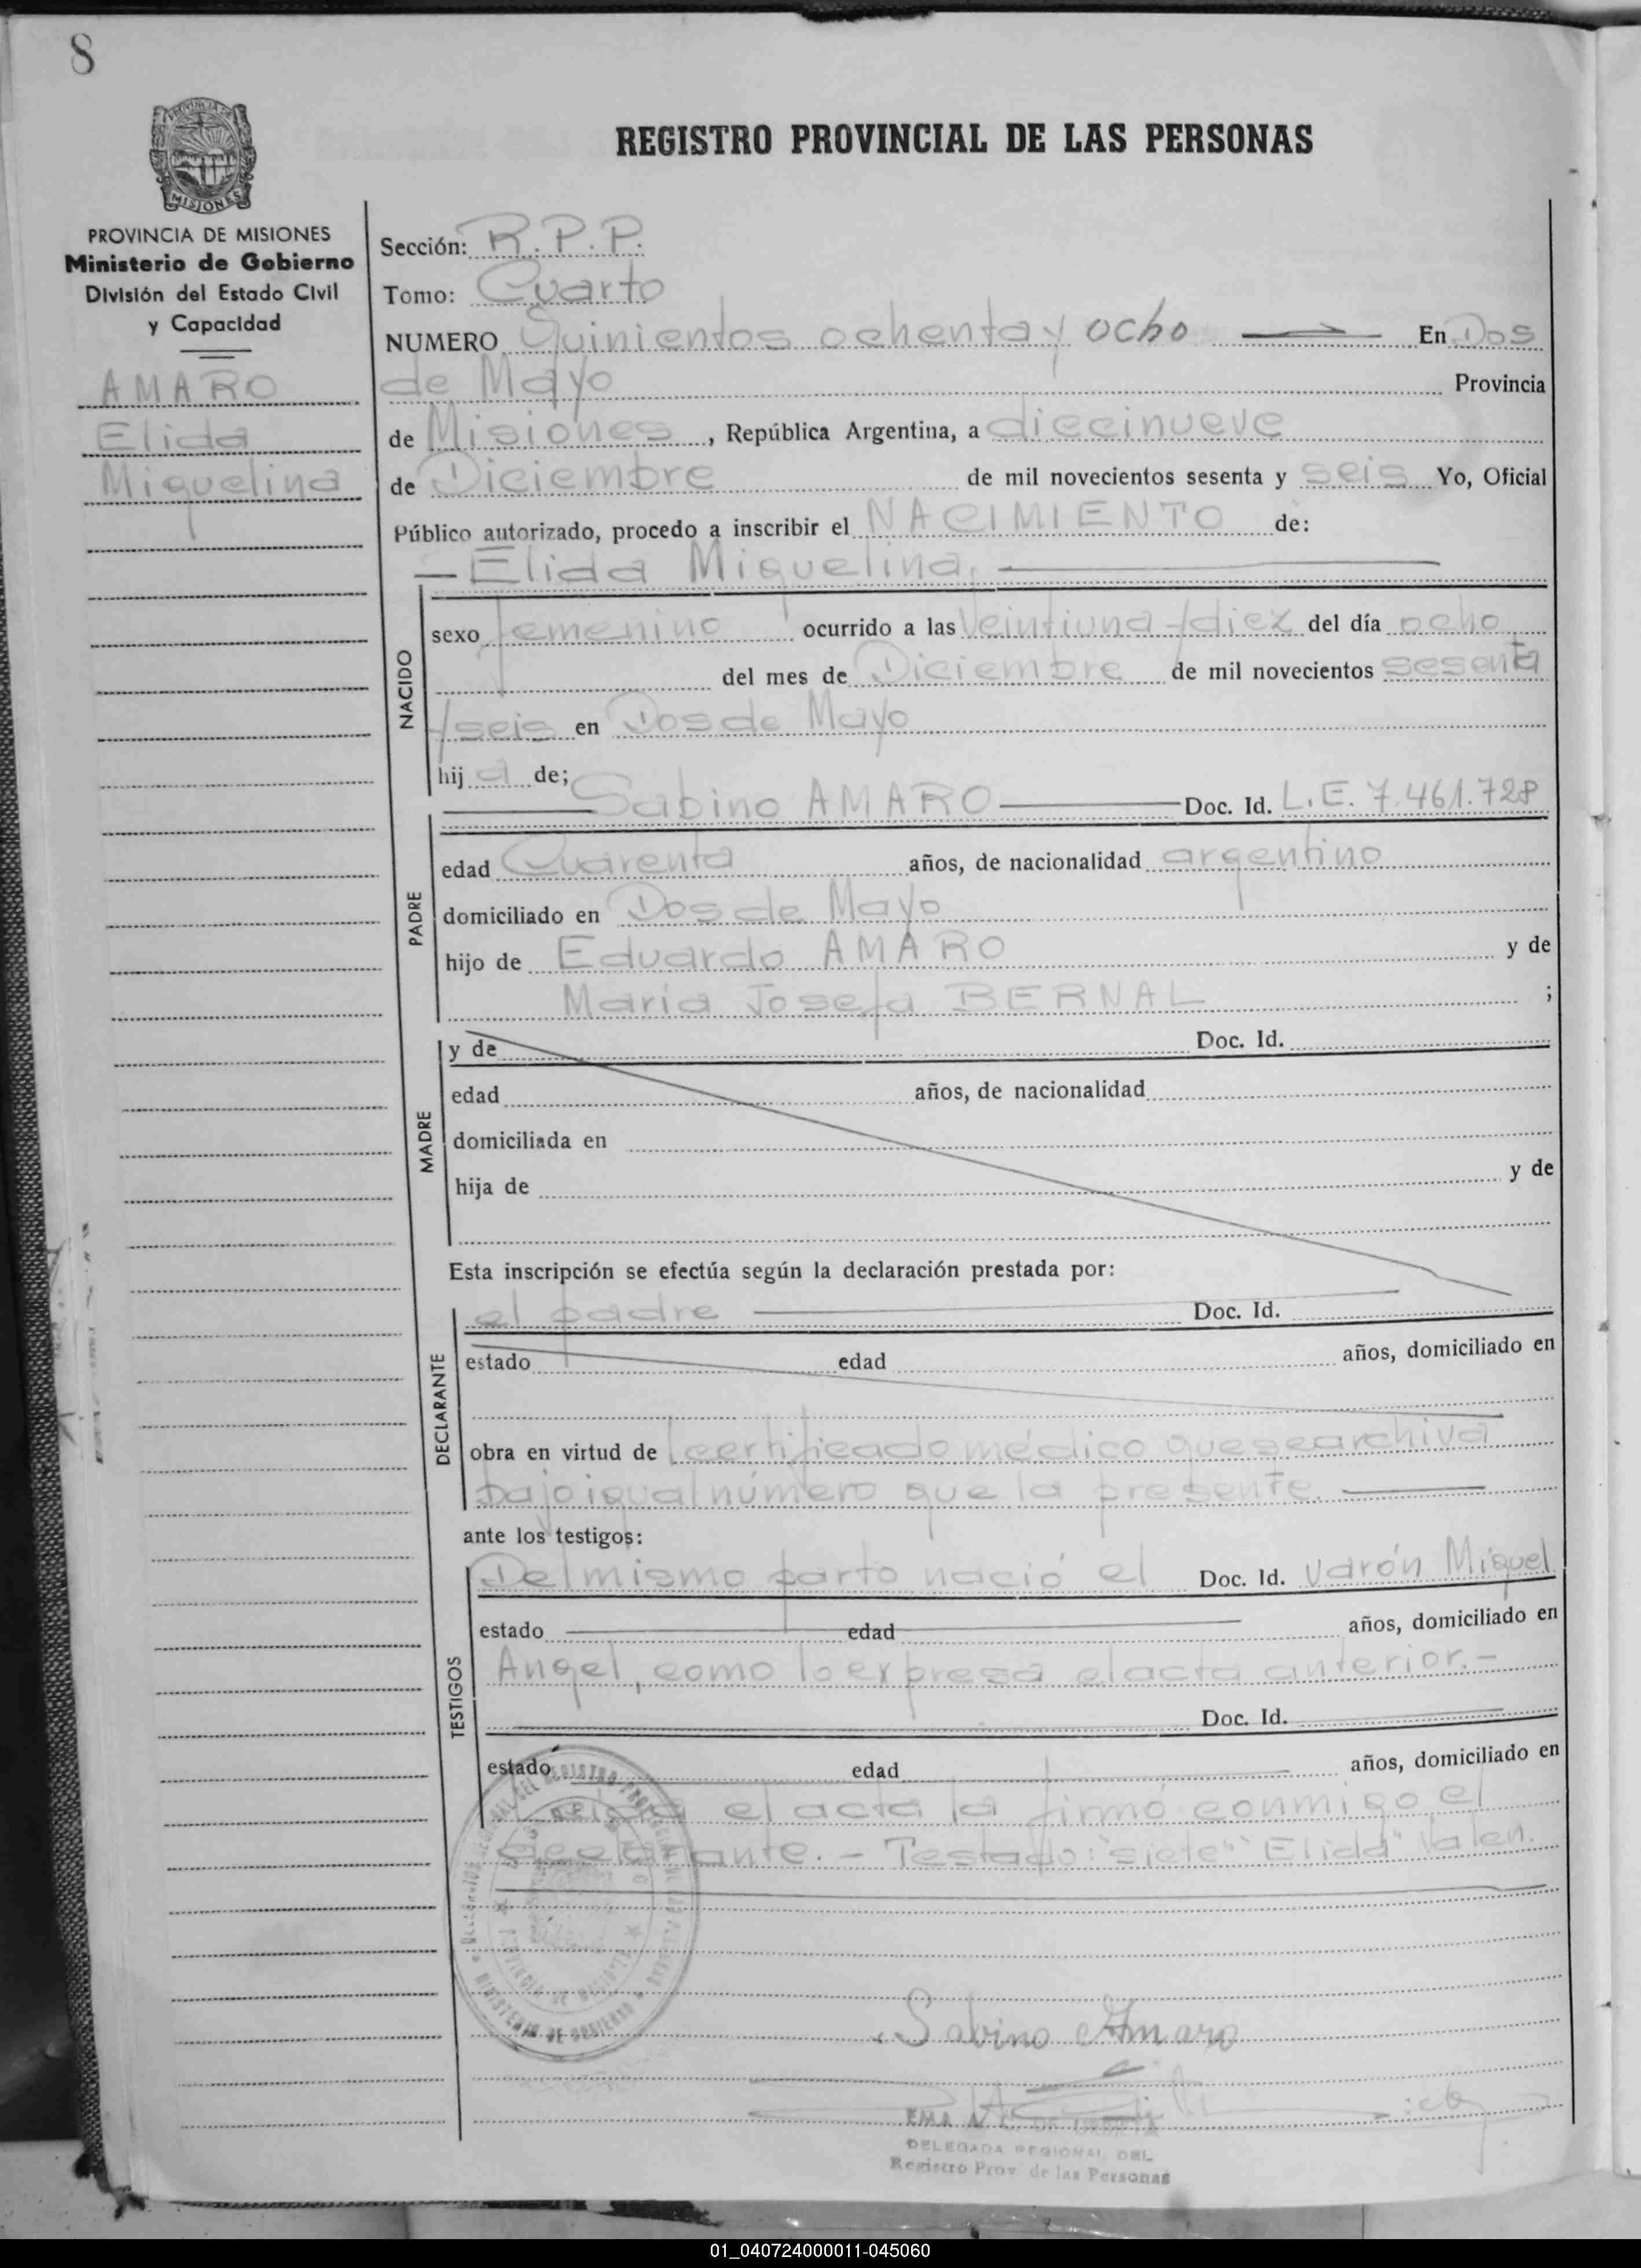 8
PROVINCIA DE MISIONES
Ministerio de Gobierno
División del Estado Civil
y Capacidad
AMARO
Elida
Miquelina
REGISTRO PROVINCIAL DE LAS PERSONAS
Sección: R.P.P.
Tomo: Cuarto
NUMERO Quinientos ochenta y ocho En Dos
de Mayo Provincia
de Misiones, República Argentina, a diecinueve
de Diciembre de mil novecientos sesenta y seis Yo, Oficial
Público autorizado, procedo a inscribir el NACIMIENTO de:
— Elida Miquelina. —
NACIDO
sexo femenino ocurrido a las veintiuna y diez del día ocho
del mes de Diciembre de mil novecientos sesenta
y seis en Dos de Mayo
hij a de;
Sabino AMARO — Doc. Id. L.E. 7.461.728
PADRE
edad Cuarenta años, de nacionalidad argentino
domiciliado en Dos de Mayo
hijo de Eduardo AMARO y de
María Josefa BERNAL ;
MADRE
y de Doc. Id.
edad años, de nacionalidad
domiciliada en
hija de y de
Esta inscripción se efectúa según la declaración prestada por:
DECLARANTE
el padre — Doc. Id.
estado edad años, domiciliado en
obra en virtud de certificado médico que se archiva
bajo igual número que la presente. —
ante los testigos:
TESTIGOS
Del mismo parto nació el Doc. Id. varón Miguel
estado edad años, domiciliado en
Angel, como lo expresa el acta anterior.-
Doc. Id.
estado edad años, domiciliado en
el acta la firmó conmigo el
declarante. — Testado: "siete" "Elida" Valen.
MINISTERIO DE GOBIERNO
Sabino Amaro
DELEGADA REGIONAL DEL
Registro Prov. de las Personas
01_040724000011-045060